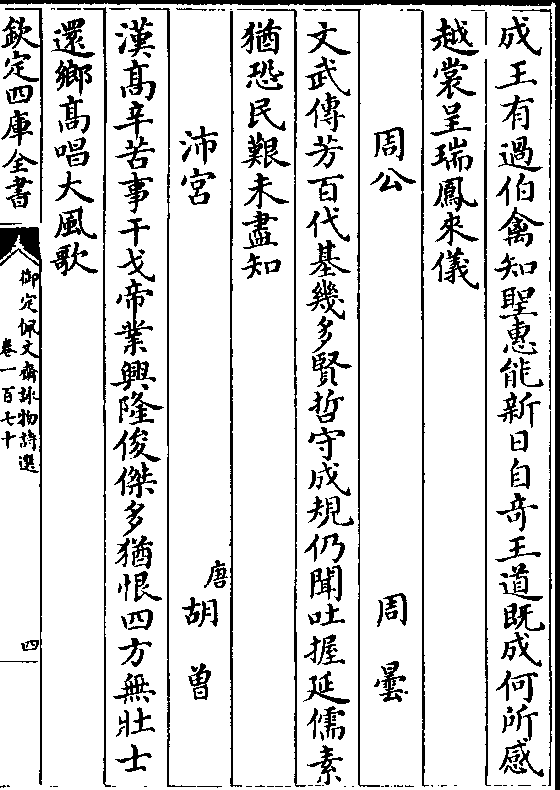 成王有過伯禽知聖惠能新日自竒王道既成何所感
越裳呈瑞鳳來儀
周公 周曇
文武傳芳百代基幾多賢哲守成規仍聞吐握延儒素
猶恐民艱未盡知
沛宮 唐 胡曾
漢髙辛苦事干戈帝業興隆俊傑多猶恨四方無壯士
還鄉髙唱大風歌
欽定四庫全書
御定佩文齋詠物詩選
卷一百七十
四